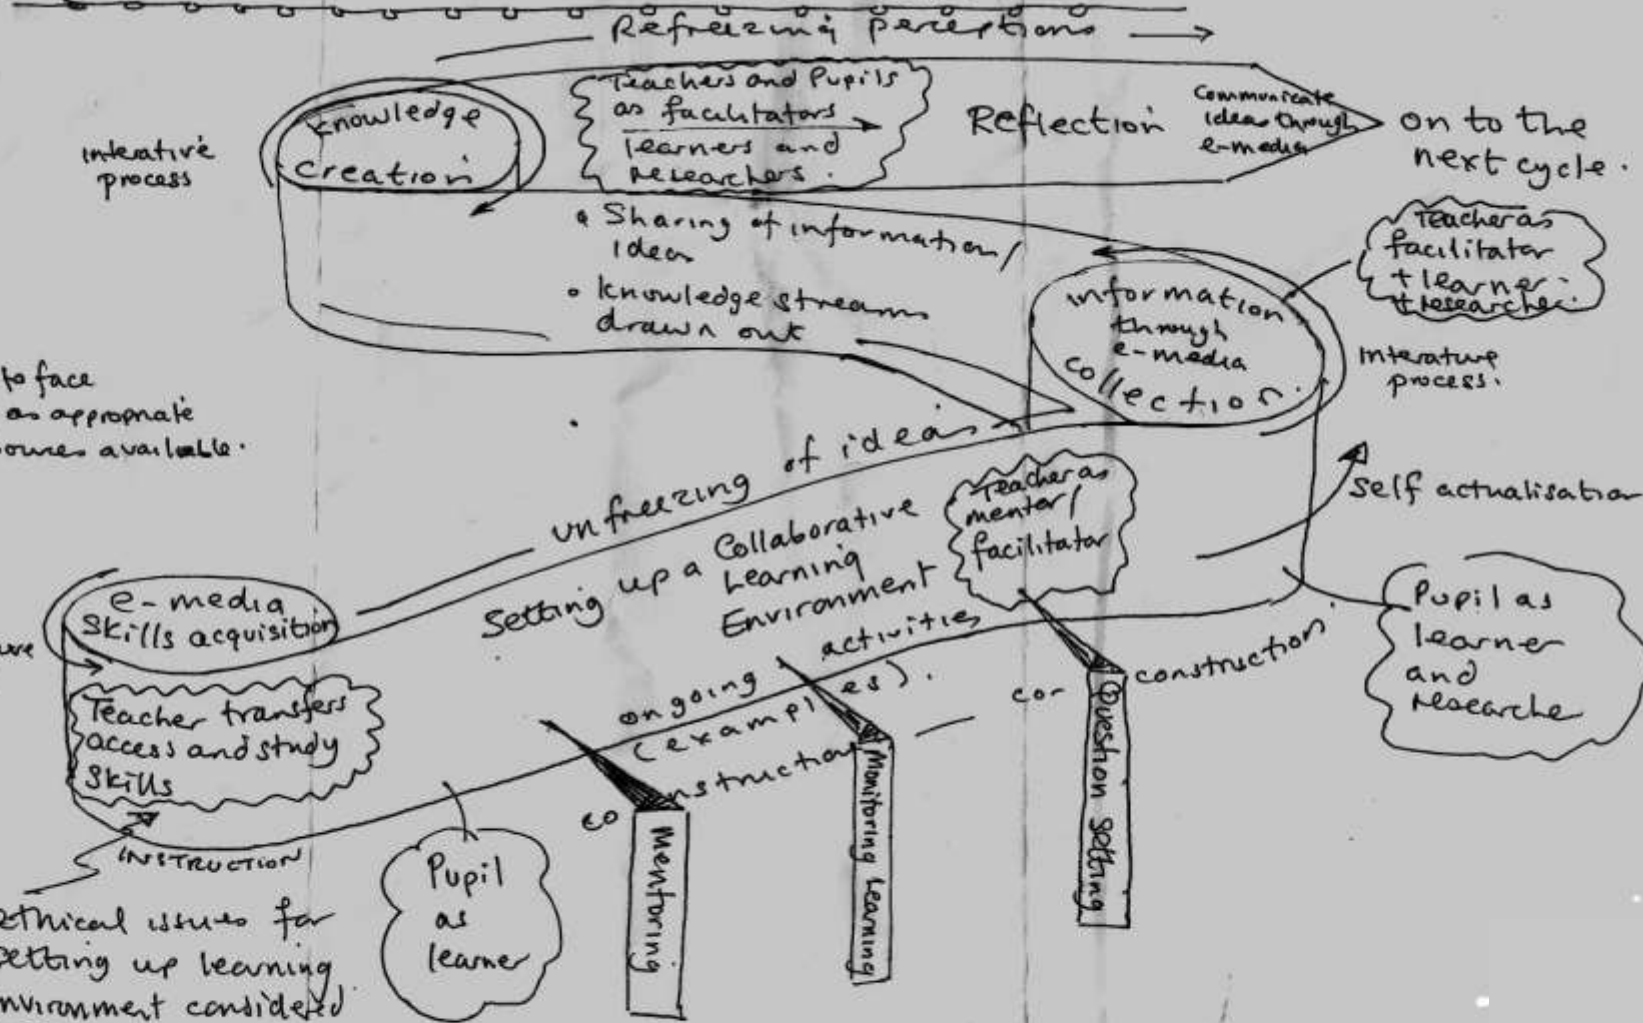 Refreezing perceptions
Knowledge
Creation
Interative
process
Teachers and Pupils
as facilitators
learners and
researchers.
Reflection
Communicate
ideas through
e-media
on to the
next cycle.
• Sharing of information/
idea
• Knowledge streams
drawn out
Teacher as
facilitator
+ learner
+ researcher.
information
through
e-media
collection.
Interature
process.
to face
as appropriate
available.
unfreezing of ideas
Setting up a Collaborative
Learning
Environment
Teacher as
mentor/
facilitator
Self actualisation
e-media
Skills acquisition
Teacher transfers
access and study
skills
ongoing activities
(examples).
co nstruction
co- construction
Pupil as
learner
and
researche
INSTRUCTION
Pupil
as
learner
Mentoring
Monitoring Learning
Question setting
ethical issues for
setting up learning
nvironment considered